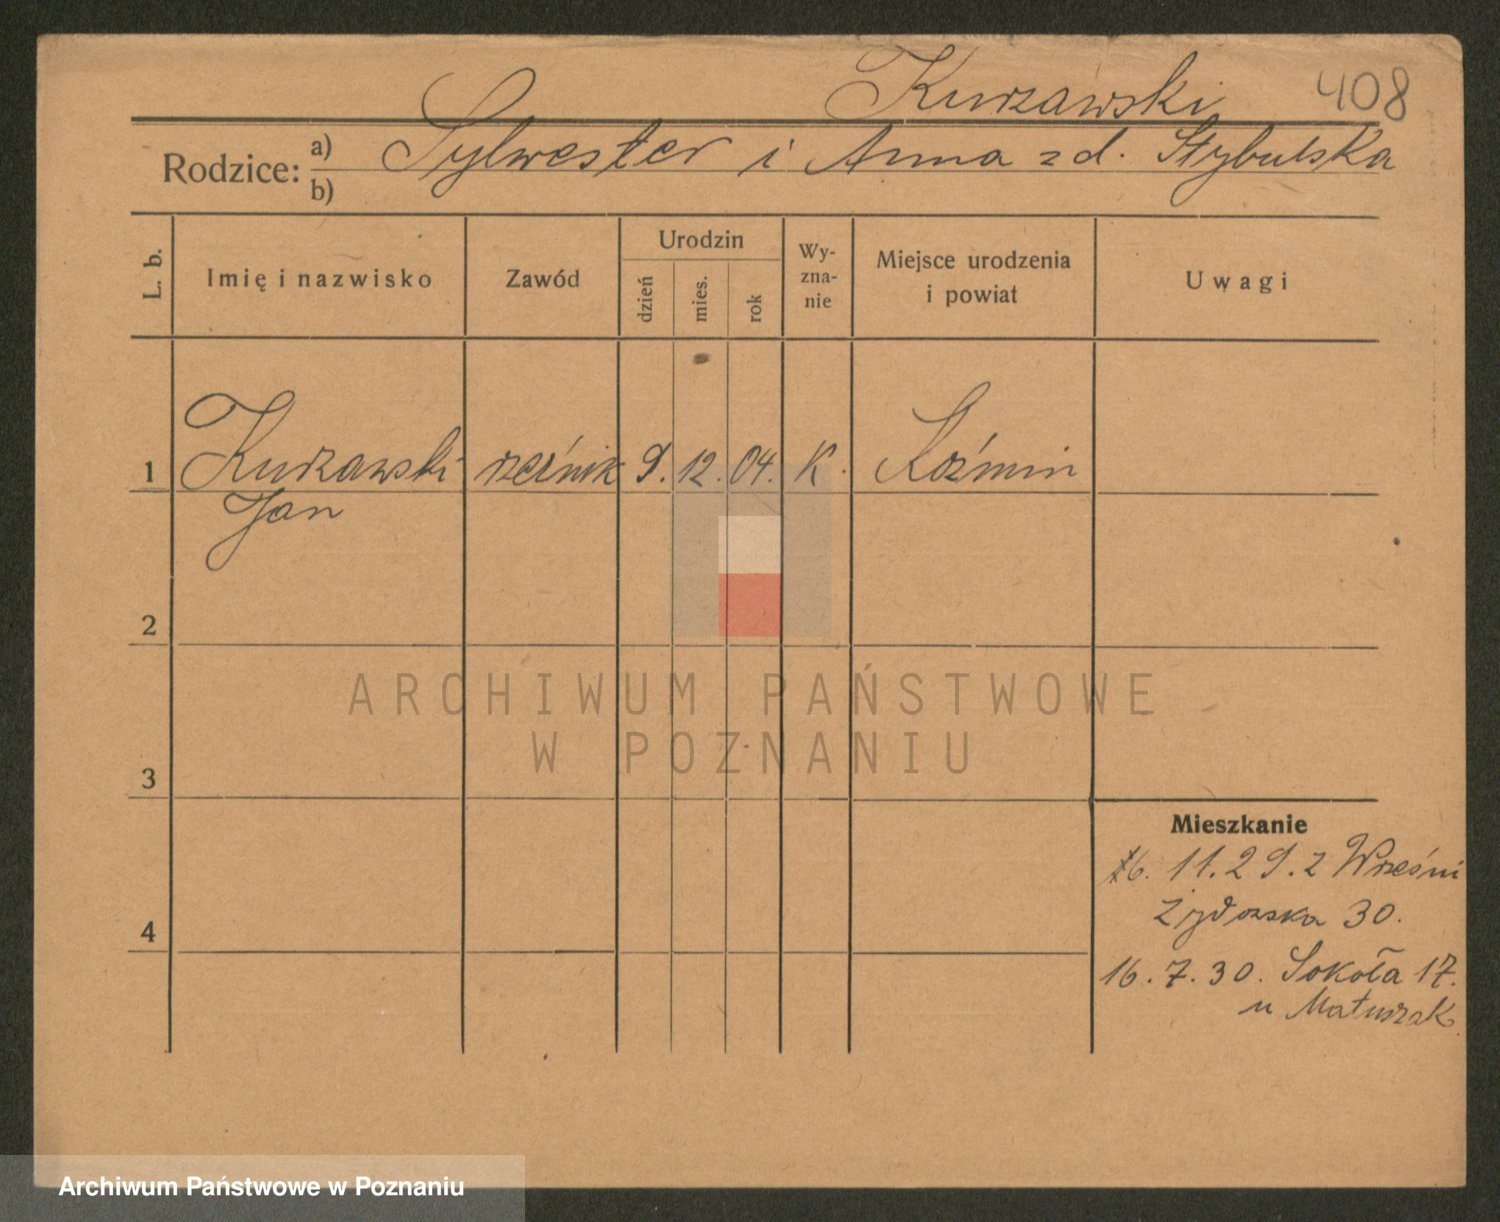 Kurzawski 408
Rodzice: a) Sylwester i Anna z d. Stybulska
b)
L. b. Imię i nazwisko Zawód Urodzin dzień mies. rok Wyznanie Miejsce urodzenia i powiat Uwagi
1 Kurzawski rzeźnik 9. 12. 04. K. Koźmin
Jan
2
3
4
Mieszkanie
16. 11. 29. z Wrześni
Żydowska 30.
16. 7. 30. Sokoła 17.
u Matuszak
ARCHIWUM PAŃSTWOWE
W POZNANIU
Archiwum Państwowe w Poznaniu